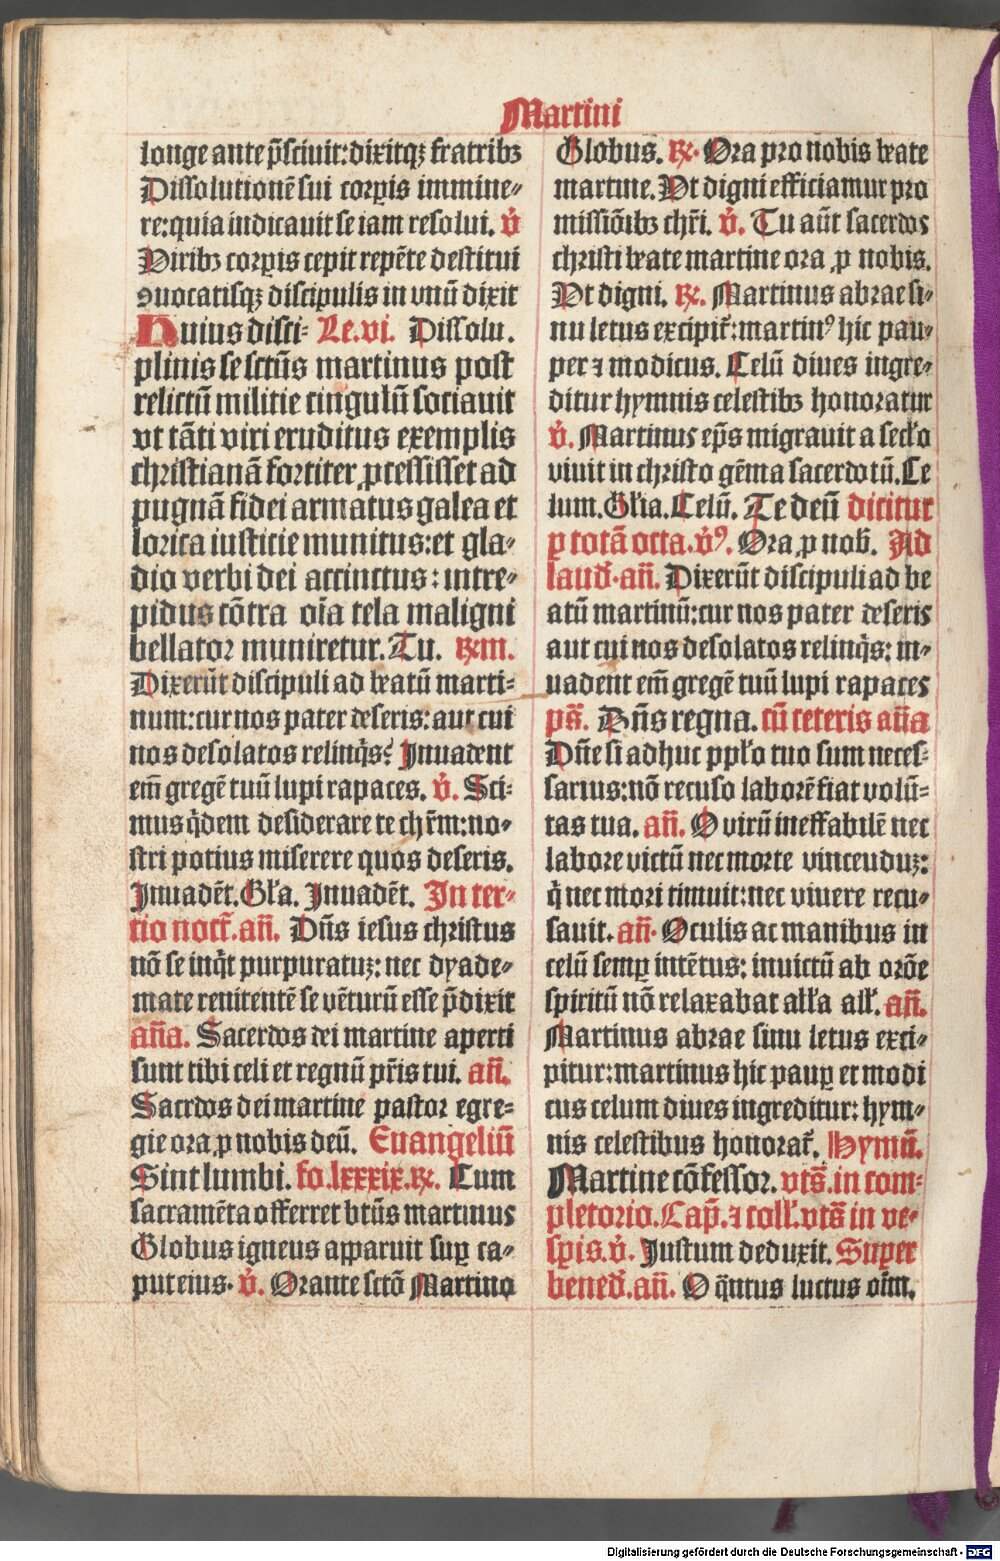 Martini
longe ante p̄sciuit: dixitqꝫ fratribꝫ
Dissolutionē sui corꝑis immine⸗
re: quia indicauit se iam resolui. v̓
Uiribꝫ corꝑis cepit repēte destitui
ꝯuocatisqꝫ discipulis in vnū dixit
Huius disci⸗ Le.vi. Dissolu.
plinis se sctūs martinus post
relictū militie cingulū sociauit
vt tāti viri eruditus exemplis
christianā fortiter ꝓcessisset ad
pugnā fidei armatus galea et
lorica iusticie munitus: et gla⸗
dio verbi dei accinctus: intre⸗
pidus cōtra oīa tela maligni
bellator muniretur. Tu. ℞.iii.
Dixerūt discipuli ad beatū marti⸗
num: cur nos pater deseris: aut cui
nos desolatos relinq̄s? Inuadent
em̄ gregē tuū lupi rapaces. v̓. Sci⸗
mus q̇dem desiderare te chr̄m: no⸗
stri potius miserere quos deseris.
Inuadēt. Gl̓a. Inuadēt. In ter⸗
tio noct̄. an̄. Dn̄s iesus christus
nō se inq̇t purpuratuꝫ: nec dyade⸗
mate renitentē se vēturū esse p̄dixit
an̄a. Sacerdos dei martine aperti
sunt tibi celi et regnū pr̄is tui. an̄.
Sacrdos dei martine pastor egre⸗
gie ora ꝓ nobis deū. Euangeliū
Sint lumbi. fo.lxxxix. ℞. Cum
sacramēta offerret btūs martinus
Globus igneus apparuit suꝑ ca⸗
put eius. v̓. Orante sctō Martino
Globus. ℞. Ora pro nobis beate
martine. Ut digni efficiamur pro
missiōibꝫ chr̄i. v̓. Tu aūt sacerdos
christi beate martine ora ꝓ nobis.
Ut digni. ℞. Martinus abrae si⸗
nu letus excipit̄: martinꝰ hic pau⸗
per ⁊ modicus. Celū diues ingre⸗
ditur hymnis celestibꝫ honoratur
v̓. Martinus ep̄s migrauit a secl̓o
viuit in christo gēma sacerdotū. Ce
lum. Gl̓ia. Celū. Te deū dicitur
ꝑ totā octa. v̓ꝰ. Ora ꝓ nob̄. Ad
laud̄. an̄. Dixerūt discipuli ad be
atū martinū: cur nos pater deseris
aut cui nos desolatos relinq̄s: in⸗
uadent em̄ gregē tuū lupi rapaces
ps̄. Dn̄s regna. cū ceteris an̄a
Dn̄e si adhuc ppl̓o tuo sum neces⸗
sarius: nō recuso laborē fiat volū⸗
tas tua. an̄. O virū ineffabilē nec
labore victū nec morte vincenduꝫ:
q̇ nec mori timuit: nec viuere recu⸗
sauit. an̄. Oculis ac manibus in
celū semꝑ intētus: inuictū ab orōe
spiritū nō relaxabat all̓a all̓. an̄.
Martinus abrae sinu letus exci⸗
pitur: martinus hic pauꝑ et modi
cus celum diues ingreditur: hym⸗
nis celestibus honorat̄. Hymn̄.
Martine cōfessor. vts̄. in com⸗
pletorio. Cap̄. ⁊ coll̓. vts̄ in ve⸗
sꝑis. v̓. Iustum deduxit. Super
bened̄. an̄. O q̄ntus luctus oīm.
Digitalisierung gefördert durch die Deutsche Forschungsgemeinschaft - DFG